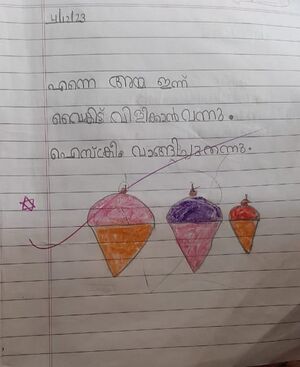 4/12/23
എന്നെ അമ്മ ഇന്ന്
വൈകിട്ട് വിളിക്കാൻ വന്നു.
ഐസ്ക്രീം വാങ്ങിച്ചുതന്നു.